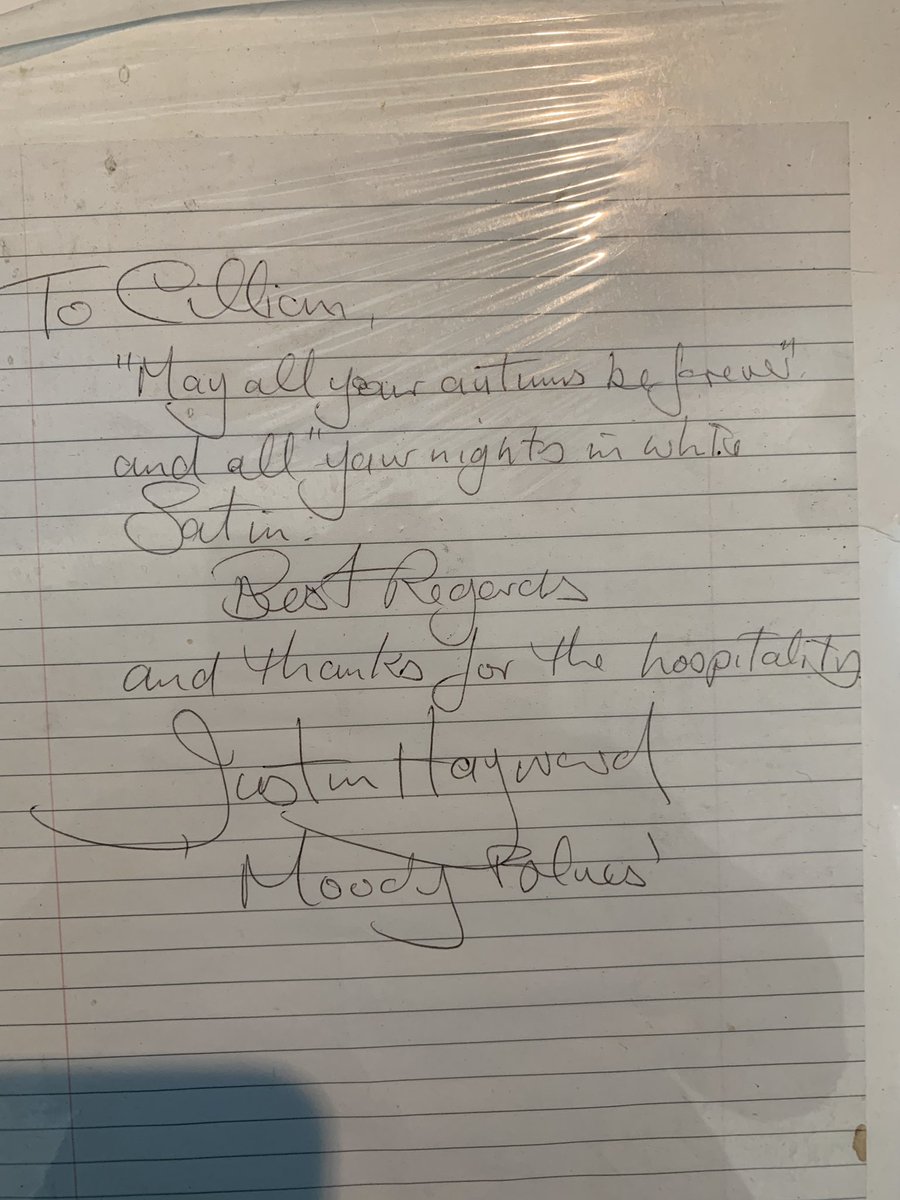 To Cillian,
"May all your autums be forever".
and all "your nights in white
Satin.
Best Regards
and thanks for the hospitality
Justin Hayward
'Moody Blues'